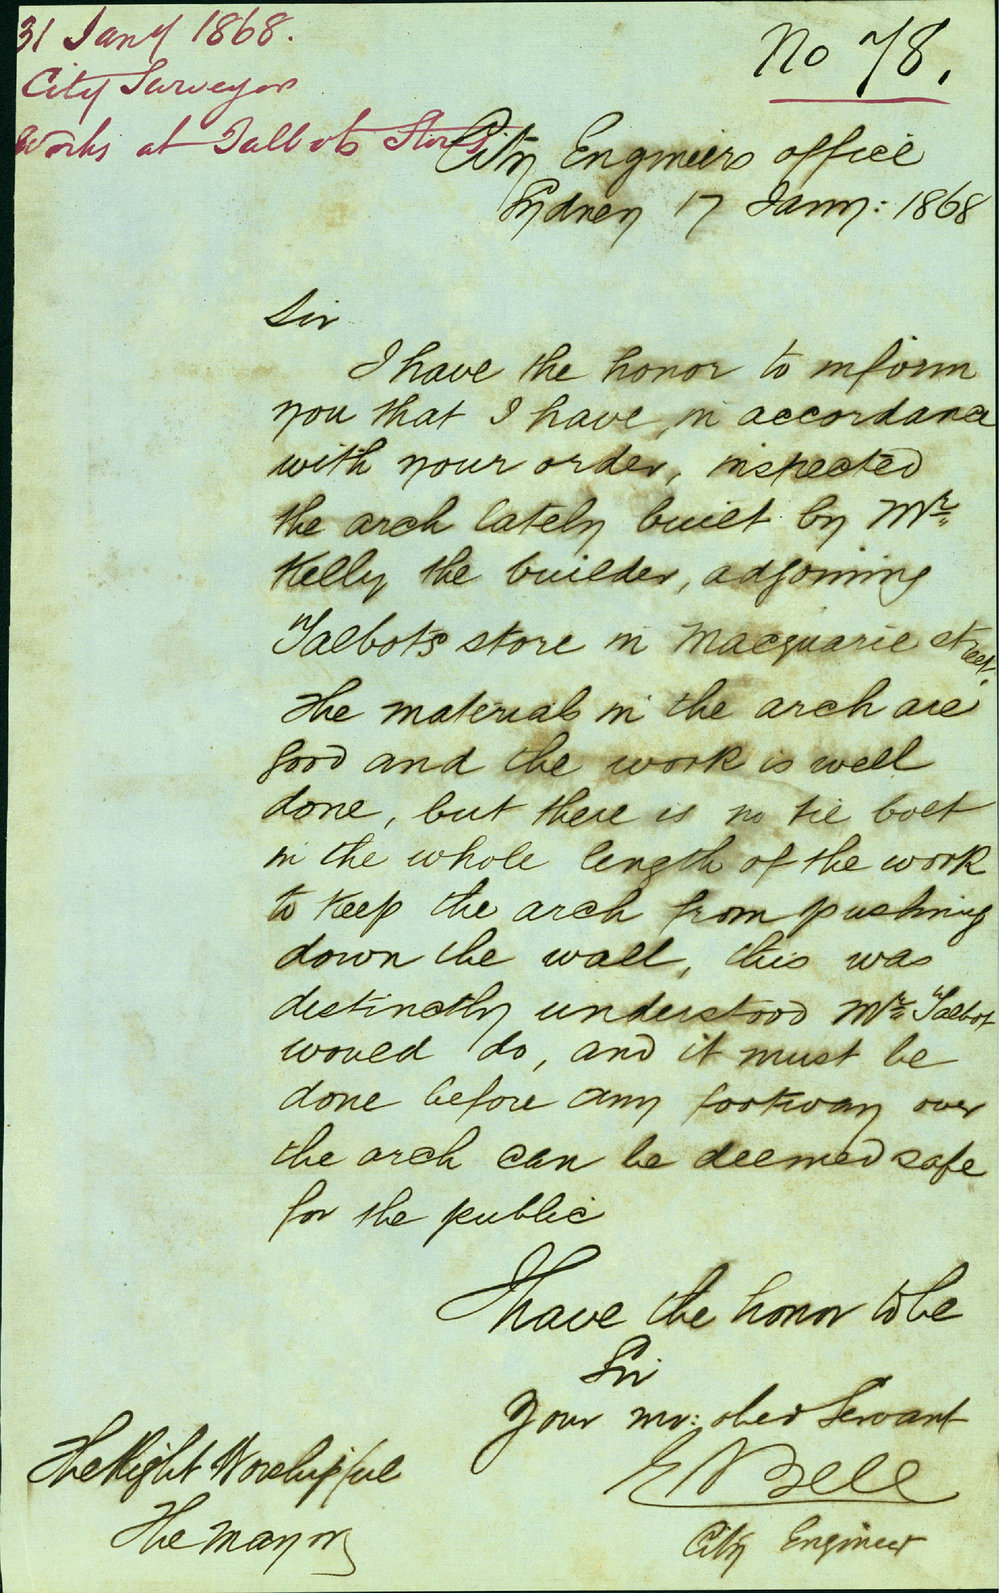 31 Jany 1868.
City Surveyor
Works at Talbots Stores
No 78.
City Engineers office
Sydney 17 Jany: 1868
Sir
I have the honor to inform
you that I have in accordance
with your order, inspected
the arch lately built by Mr
Kelly the builder, adjoining
Talbots store in Macquarie street.
The materials in the arch are
good and the work is well
done, but there is no tie bolt
in the whole length of the work
to keep the arch from pushing
down the wall, this was
distinctly understood Mr Talbot
would do, and it must be
done before any footway over
the arch can be deemed safe
for the public
I have the honor to be
Sir
Your mo: obed Servant
E Bell
City Engineer
The Right Worshipful
The Mayor